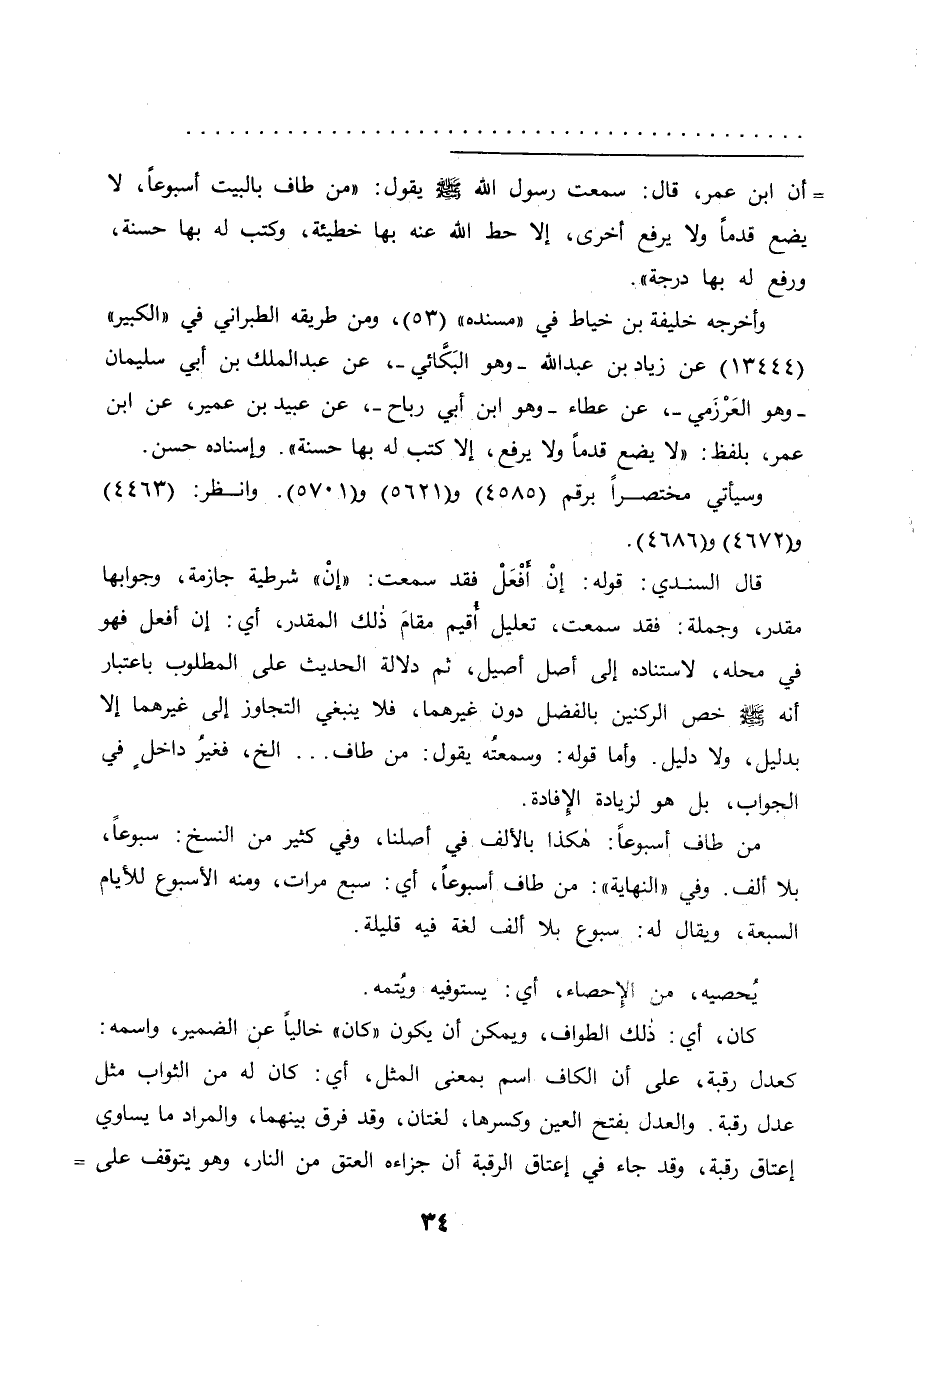 = أن ابن عمر، قال: سمعت رسول الله ﷺ يقول: «من طاف بالبيت أسبوعاً، لا
يضع قدماً ولا يرفع أخرى، إلا حط الله عنه بها خطيئة، وكتب له بها حسنة،
ورفع له بها درجة».
وأخرجه خليفة بن خياط في «مسنده» (٥٣)، ومن طريقه الطبراني في «الكبير»
(١٣٤٤٤) عن زياد بن عبدالله ـ وهو البَكَّائي ـ، عن عبدالملك بن أبي سليمان
ـ وهو العَرْزَمي ـ، عن عطاء ـ وهو ابن أبي رباح ـ، عن عبيد بن عمير، عن ابن
عمر، بلفظ: «لا يضع قدماً ولا يرفع، إلا كتب له بها حسنة». وإسناده حسن.
وسيأتي مختصراً برقم (٤٥٨٥) و(٥٦٢١) و(٥٧٠١). وانظر: (٤٤٦٣)
و(٤٦٧٢) و(٤٦٨٦).
قال السندي: قوله: إنْ أَفْعَلْ فقد سمعت: «إنْ» شرطية جازمة، وجوابها
مقدر، وجملة: فقد سمعت، تعليل أُقيم مقامَ ذٰلك المقدر، أي: إن أفعل فهو
في محله، لاستناده إلى أصل أصيل، ثم دلالة الحديث على المطلوب باعتبار
أنه ﷺ خص الركنين بالفضل دون غيرهما، فلا ينبغي التجاوز إلى غيرهما إلا
بدليل، ولا دليل. وأما قوله: وسمعتُه يقول: من طاف... الخ، فغيرُ داخلٍ في
الجواب، بل هو لزيادة الإفادة.
من طاف أسبوعاً: هٰكذا بالألف في أصلنا، وفي كثير من النسخ: سبوعاً،
بلا ألف. وفي «النهاية»: من طاف أسبوعاً، أي: سبع مرات، ومنه الأسبوع للأيام
السبعة، ويقال له: سبوع بلا ألف لغة فيه قليلة.
يُحصيه، من الإِحصاء، أي: يستوفيه ويُتمه.
كان، أي: ذٰلك الطواف، ويمكن أن يكون «كان» خالياً عن الضمير، واسمه:
كعدل رقبة، على أن الكاف اسم بمعنى المثل، أي: كان له من الثواب مثل
عدل رقبة. والعدل بفتح العين وكسرها، لغتان، وقد فرق بينهما، والمراد ما يساوي
إعتاق رقبة، وقد جاء في إعتاق الرقبة أن جزاءه العتق من النار، وهو يتوقف على =
٣٤